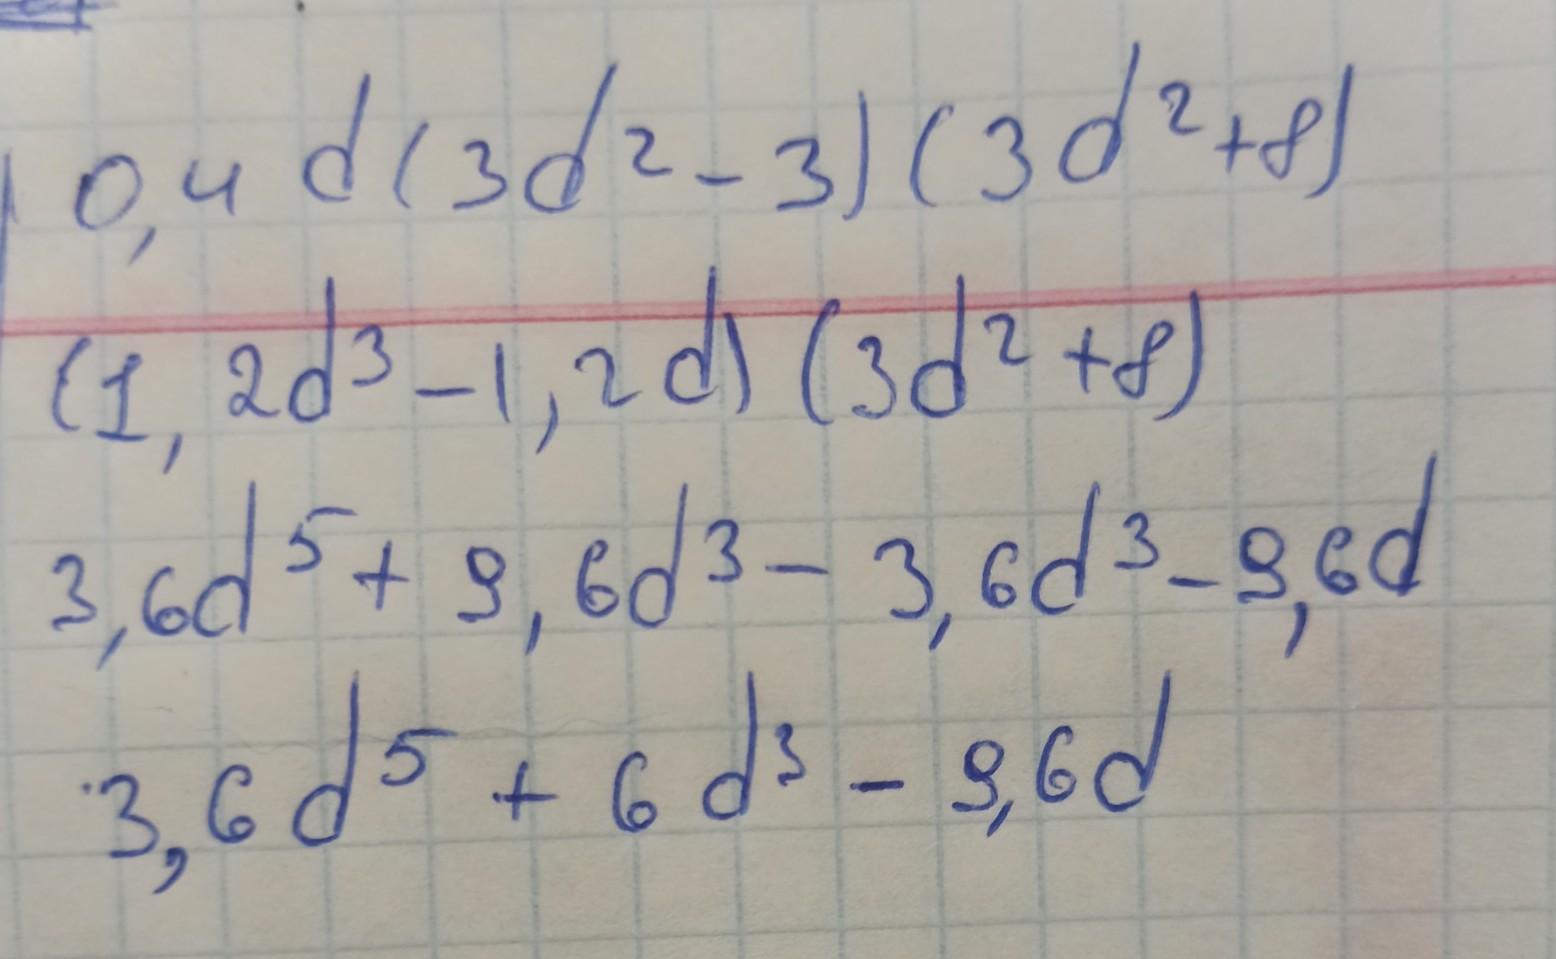 0,4d(3d²-3)(3d²+8)
(1,2d³-1,2d)(3d²+8)
3,6d⁵+9,6d³-3,6d³-9,6d
3,6d⁵+6d³-9,6d